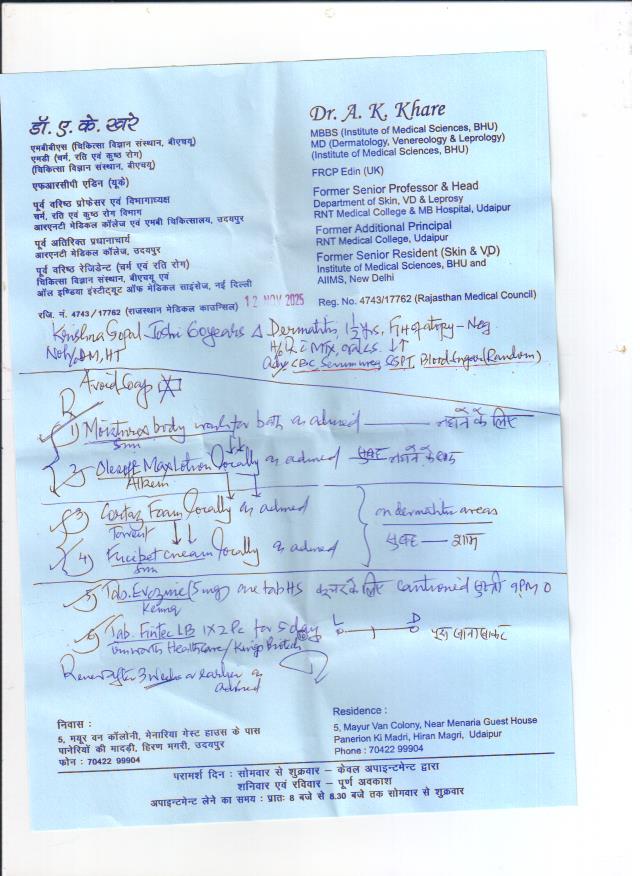 डॉ. ए. के. खरे
एमबीबीएस (चिकित्सा विज्ञान संस्थान, बीएचयू)
एमडी (चर्म, रति एवं कुष्ठ रोग)
(चिकित्सा विज्ञान संस्थान, बीएचयू)
एफआरसीपी एडिन (यूके)
पूर्व वरिष्ठ प्रोफेसर एवं विभागाध्यक्ष
चर्म, रति एवं कुष्ठ रोग विभाग
आरएनटी मेडिकल कॉलेज एवं एमबी चिकित्सालय, उदयपुर
पूर्व अतिरिक्त प्रधानाचार्य
आरएनटी मेडिकल कॉलेज, उदयपुर
पूर्व वरिष्ठ रेजिडेन्ट (चर्म एवं रति रोग)
चिकित्सा विज्ञान संस्थान, बीएचयू एवं
ऑल इण्डिया इंस्टीट्यूट ऑफ मेडिकल साइंसेज, नई दिल्ली
रजि. नं. 4743/17762 (राजस्थान मेडिकल काउन्सिल)
Dr. A. K. Khare
MBBS (Institute of Medical Sciences, BHU)
MD (Dermatology, Venereology & Leprology)
(Institute of Medical Sciences, BHU)
FRCP Edin (UK)
Former Senior Professor & Head
Department of Skin, VD & Leprosy
RNT Medical College & MB Hospital, Udaipur
Former Additional Principal
RNT Medical College, Udaipur
Former Senior Resident (Skin & VD)
Institute of Medical Sciences, BHU and
AIIMS, New Delhi
Reg. No. 4743/17762 (Rajasthan Medical Council)
12 NOV 2025
Krishna Gopal Joshi 60years Δ Dermatitis 1½ yrs, F/H of atopy - Neg
No h/o DM, HT
CBC, Serum urea, SGPT, Blood Sugar (Random)
Avoid Soap
1) body wash for bath as advised — नहाने के लिए
Sun
2) Max Lotion locally as advised सुबह नहाने के बाद
Alkem
3) Foam locally as advised
Torrent
4) Fucibet cream locally as advised
Sun
on dermatitis areas
सुबह — शाम
5) Tab. (5mg) one tab HS के लिए 9PM
6) Tab. Fintec LB 1X2 PC for 5 days
Healthcare/
L D
after 3 weeks or earlier as
advised
निवास :
5, मयूर वन कॉलोनी, मेनारिया गेस्ट हाउस के पास
पानेरियों की मादड़ी, हिरण मगरी, उदयपुर
फोन : 70422 99904
Residence :
5, Mayur Van Colony, Near Menaria Guest House
Panerion Ki Madri, Hiran Magri, Udaipur
Phone : 70422 99904
परामर्श दिन : सोमवार से शुक्रवार - केवल अपाइन्टमेन्ट द्वारा
शनिवार एवं रविवार - पूर्ण अवकाश
अपाइन्टमेन्ट लेने का समय : प्रातः 8 बजे से 8.30 बजे तक सोमवार से शुक्रवार